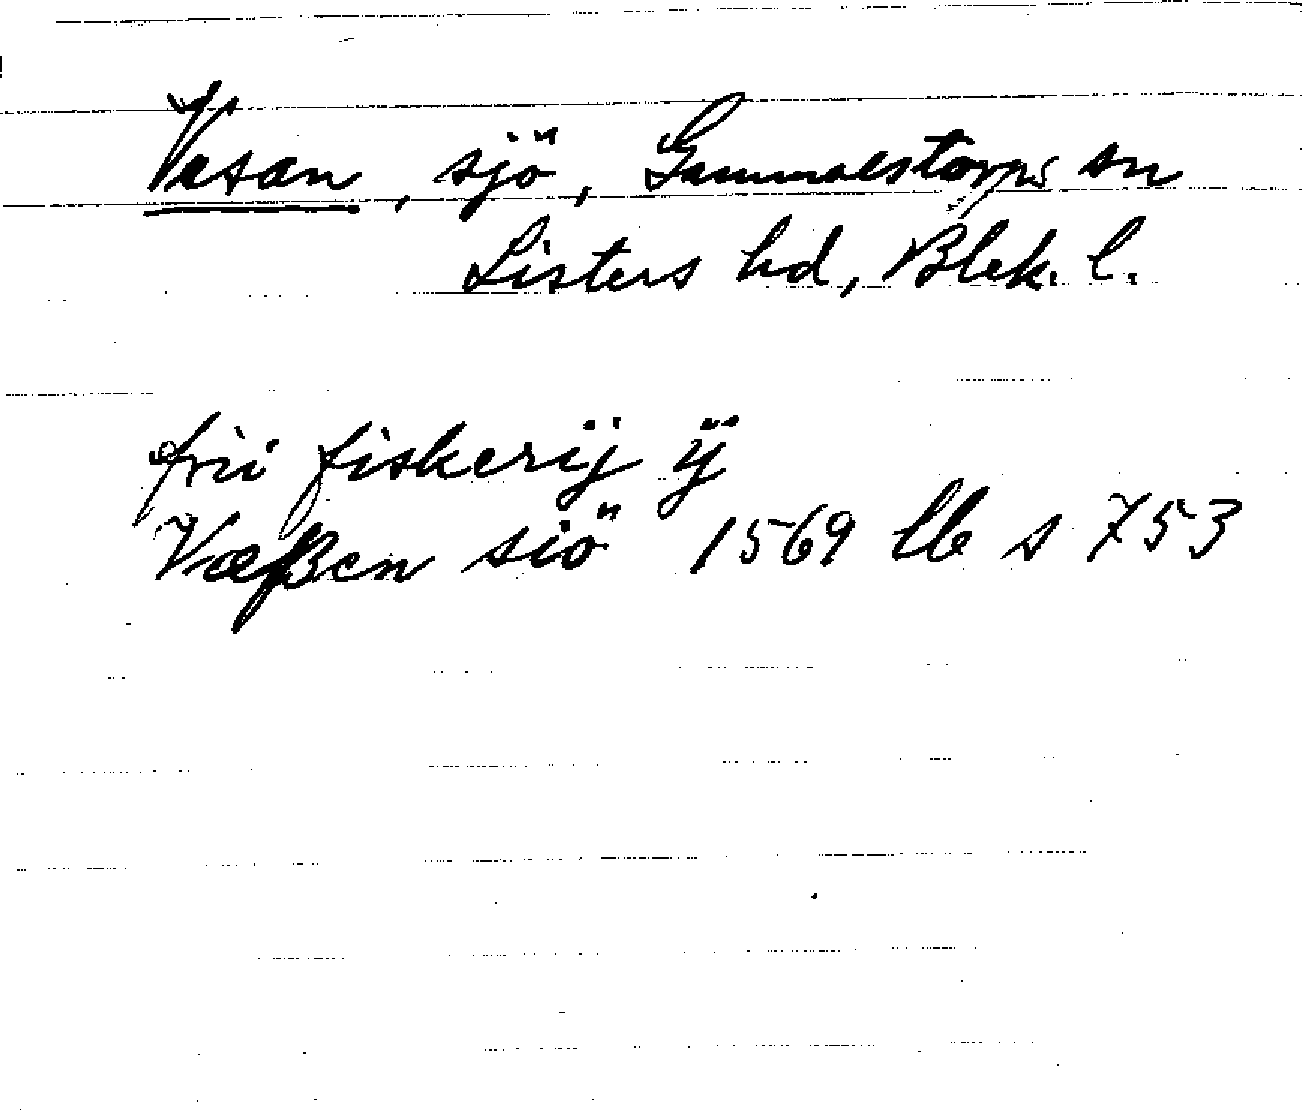 Vesan, sjö, Gammalstorps sn
Listers hd, Blek. l.
frii fiskerij ÿ
Væßen siö 1569 lb s 753